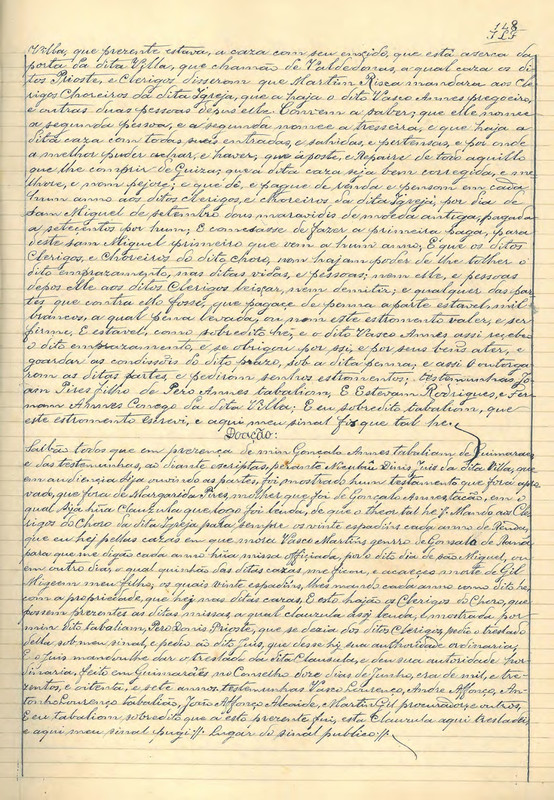 148
Villa, que prezente estava, a caza com seu enxido, que está acerca da
porta da dita Villa, que chamão de Valdedonas, a qual caza os di-
tos Prioste, e Clerigos disserom que Martim Risca mandara aos Cle-
rigos Choreiros da dita Igreja, que a haja o dito Vasco Annes pregoeiro,
e outras duas pessoas depus elle. Convem a saber; que elle nomee
a segunda pessoa, e a segunda nomee a tresseira, e que haja a
dita caza com todas suas entradas, e sahidas, e pertensas, e por onde
a melhor puder achar, e haver, que aposte, e Repaire de todo aquillo
que lhe comprir de Guiza; que a dita caza seja bem corregida, e me-
lhore, e nom pejore; e que dê, e pague de renda e pensom em cada
hum anno aos ditos Clerigos, e Choreiros da dita Igreja; por dia de
Sam Miguel de setembro dous maravidis de moeda antiga, pagada
a setecentos por hum; E comesasse de fazer a primeira paga, para
deste sam Miguel primeiro que vem a hum anno, E que os ditos
Clerigos, e Choreiros do dito Choro, nom hajam poder de lhe tolher o
dito emprazamento, nas ditas vidas, e pessoas; nem elle, e pessoas
depos elle aos ditos Clerigos leixar, nem demitir; e qualquer das par-
tes que contra ello fosse, que pagace de penna a parte estavel, mil
brancos, a qual pena levada, ou nom este estromento valer, e ser
firme, E estavel, como sobredito he; e o dito Vasco Annes assi recebeo
o dito emprazamento, e se obrigou por ssi, e por seus bens a ter, e
goardar as condissões do dito prazo, sob a dita penna; e assi o outorga-
rom as ditas partes, e pedirom senhos estromentos; testemunhas Jo-
am Pires filho de Pero Annes tabaliam, E Estevam Rodrigues, e Fer-
nam Annes Conego da dita Villa; E eu sobredito tabaliam, que
este estromento escrevi, e aqui meu sinal fix que tal he
Doação:
Saibão todos que em prezença de mim Gonçalo Annes tabaliam de Guimaraes
e das testemunhas, ao diante escriptas, perante Nicolau Dinis Juis da dita Villa, que
em audiencia sija ouvindo as partes, foi mostrado hum testamento que fora apro-
vado, que fora de Margarida Pires, molher que foi de Gonçalo Annes, em o
qual sija húa Clauzula que logo foi leuda, de que o theor tal he. Mando aos Cle-
rigos do Choro da dita Igreja para sempre os vinte espadins cada anno de Renda,
que eu hej pellas cazas em que mora Vasco Martins genrro de Gonsalo de
para que me digão cada anno húa missa officiada, por o dito dia de são Miguel, ou
em outro dia, o qual quinhão das ditas cazas, me ficou, e aconteceo morte de Gil
meu filho, os quais vinte espadins, lhes mando cada anno como dito he,
com a propriedade, que hej nas ditas cazas. E esto hajão os Clerigos do Choro, que
fossem prezentes às ditas missas, a qual clauzula assi leuda, e mostrada por
mim dito tabaliam, Pero Domis Prioste, que se dezia dos ditos Clerigos, pedio o treslado
della sob meu sinal, e pedio ao dito juis, que desse hi sua authoridade ordinaria;
E o juis mandou lhe dar o treslado da dita Clausula, e deu sua autoridade hor-
dinaria; feito em Guimaraës no Conselho doze dias de Junho, era de mil, e tre-
zentos, e oitenta, e sete annos. testemunhas Vasco Lourenço, Andre Affonço, An-
tonho Lourenço tabalião, João Affonço Alcaide, Martim Gil procurador, e outros,
E eu tabaliam sobredito que a esto prezente fui, esta Clauzula aqui tresladei
e aqui meu sinal pugi :||: Lugar do sinal publico :||: